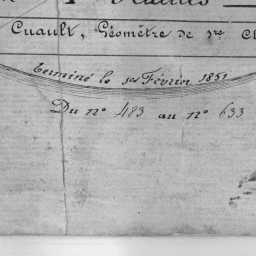 Feuilles
Cuault, Géomètre de 1re Cl
Terminé le 1er Février 1851
Du nº 483 au nº 633